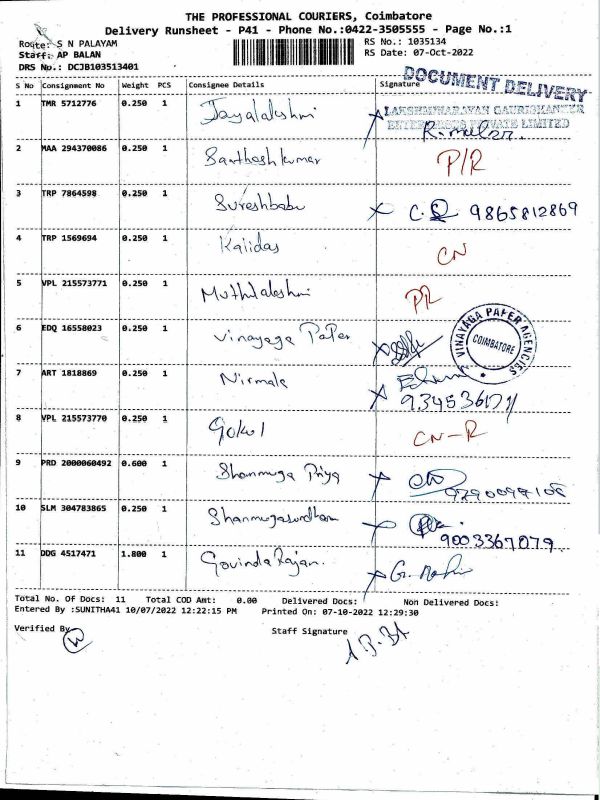 THE PROFESSIONAL COURIERS, Coimbatore
Delivery Runsheet - P41 - Phone No.:0422-3505555 - Page No.:1
Route: S N PALAYAM RS No.: 1035134
Staff: AP BALAN RS Date: 07-Oct-2022
DRS No.: DCJB103513401
S No Consignment No Weight PCS Consignee Details Signature
DOCUMENT DELIVERY
1 TMR 5712776 0.250 1 Jayalakshmi
LAKSHMINARAYAN GAURISHANKER
ENTERPRISES PRIVATE LIMITED
2 MAA 294370086 0.250 1 Santhosh kumar P/R
3 TRP 7864598 0.250 1 Sureshbabu 9865812869
4 TRP 1569694 0.250 1 Kaiidas CN
5 VPL 215573771 0.250 1 Muthulakshmi PR
6 EDQ 16558023 0.250 1 Vinayaga PaPer
VINAYAGA PAPER AGENCIES COIMBATORE
7 ART 1818869 0.250 1 Nirmala
8 VPL 215573770 0.250 1 Gokul CN-R
9 PRD 2000060492 0.600 1 Shanmuga Priya
10 SLM 304783865 0.250 1 Shanmugasundham 9003367079
11 DDG 4517471 1.800 1 Govinda Rajan.
Total No. Of Docs: 11 Total COD Amt: 0.00 Delivered Docs: Non Delivered Docs:
Entered By :SUNITHA41 10/07/2022 12:22:15 PM Printed On: 07-10-2022 12:29:30
Verified By Staff Signature